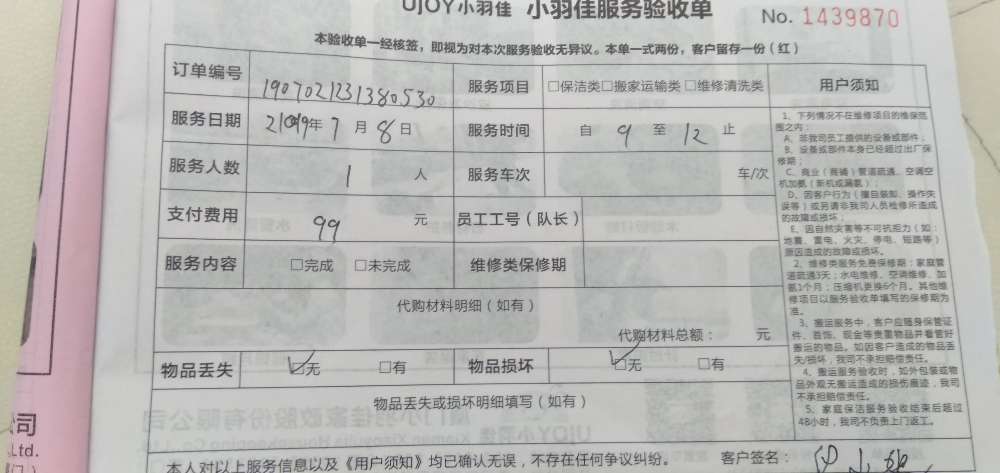 UJOY小羽佳 小羽佳服务验收单 No. 1439870
本验收单一经核签，即视为对本次服务验收无异议。本单一式两份，客户留存一份（红）
订单编号 1907021231380530 服务项目 □保洁类□搬家运输类 □维修清洗类 用户须知
服务日期 2019年7月8日 服务时间 自 9 至 12 止
服务人数 1 人 服务车次 车/次
支付费用 99 元 员工工号（队长）
服务内容 □完成 □未完成 维修类保修期
代购材料明细（如有）
代购材料总额： 元
物品丢失 ☑无 □有 物品损坏 ☑无 □有
物品丢失或损坏明细填写（如有）
本人对以上服务信息以及《用户须知》均已确认无误，不存在任何争议纠纷。 客户签名：
1、下列情况不在维修项目的维保范
围之内：
A、非我司员工提供的设备或部件；
B、设备或部件本身已经超过出厂保
修期；
C、商业（商铺）管道疏通、空调空
机加氨（新机或漏氨）；
D、因客户行为（擅自装卸、操作失
误等）或另请非我司人员检修所造成
的故障或损坏；
E、因自然灾害等不可抗拒力（如：
地震、雷电、火灾、停电、短路等）
原因造成的故障或损坏。
2、维修类服务免费保修期：家庭管
道疏通3天；水电维修、空调维修、加
氨1个月；压缩机更换6个月。其他维
修项目以服务验收单填写的保修期为
准。
3、搬运服务中，客户应随身保管证
件、首饰、现金等贵重物品并看管好
搬运的物品。如因客户造成的物品丢
失/损坏，我司不承担赔偿责任。
4、搬运服务验收时，如外包装或物
品外观无搬运造成的损伤痕迹，我司
不承担赔偿责任。
5、家庭保洁服务验收结束后超过
48小时，我司不负责上门返工。
司
Ltd.